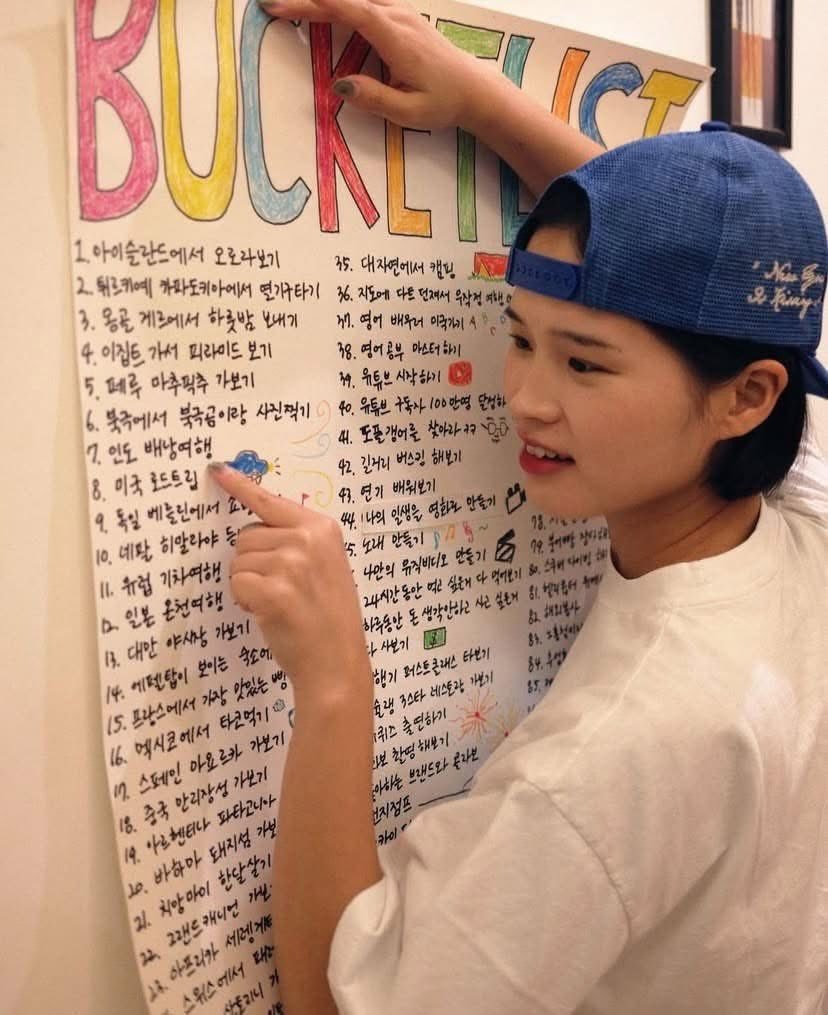 BUCKETLIST
1. 아이슬란드에서 오로라보기
2. 튀르키예 카파도키아에서 열기구타기
3. 몽골 게르에서 하룻밤 보내기
4. 이집트 가서 피라미드 보기
5. 페루 마추픽추 가보기
6. 북극에서 북극곰이랑 사진찍기
7. 인도 배낭여행
8. 미국 로드트립
9. 독일 베를린에서
10. 네팔 히말라야
11. 유럽 기차여행
12. 일본 온천여행
13. 대만 야시장 가보기
14. 에펠탑이 보이는 숙소에
15. 프랑스에서 가장 맛있는 빵
16. 멕시코에서 타코먹기
17. 스페인 마요르카 가보기
18. 중국 만리장성 가보기
19. 아르헨티나 파타고니아
20. 바하마 돼지섬 가보
21. 치앙마이 한달살기
22. 그랜드캐니언 가보
23. 아프리카 세렝게
스위스에서
산토리니
35. 대자연에서 캠핑
36. 지도에 다트 던져서 무작정 여행
37. 영어 배우러 미국가기
38. 영어공부 마스터하기
39. 유튜브 시작하기
40. 유튜브 구독자 100만명 달성하
41. 도플갱어를 찾아라 ㅋㅋ
42. 길거리 버스킹 해보기
43. 연기 배워보기
44. 나의 일생을 영화로 만들기
5. 노래 만들기
나만의 뮤직비디오 만들기
24시간동안 먹고 싶은거 다 먹어보기
하루동안 돈 생각안하고 사고 싶은거
다 사보기
행기 퍼스트클래스 타보기
슐랭 3스타 레스토랑 가보기
퀴즈 출연하기
촬영해보기
아하는 브랜드와 콜라보
번지점프
카이
78.
79.
80. 스쿠버 다이빙
81.
82. 해외봉사
83.
84.
85.